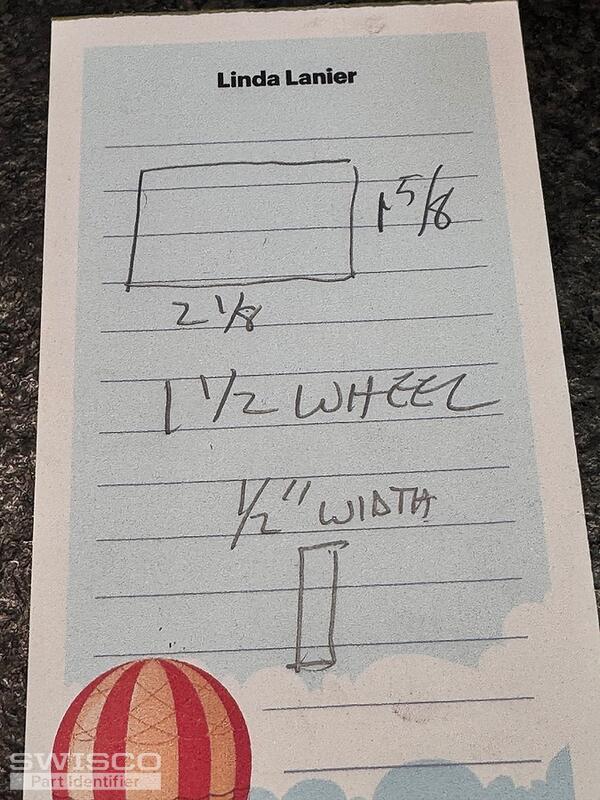 Linda Lanier
1 5/8
2 1/8
1 1/2 WHEEL
1/2" WIDTH
SWISCO
Part Identifier